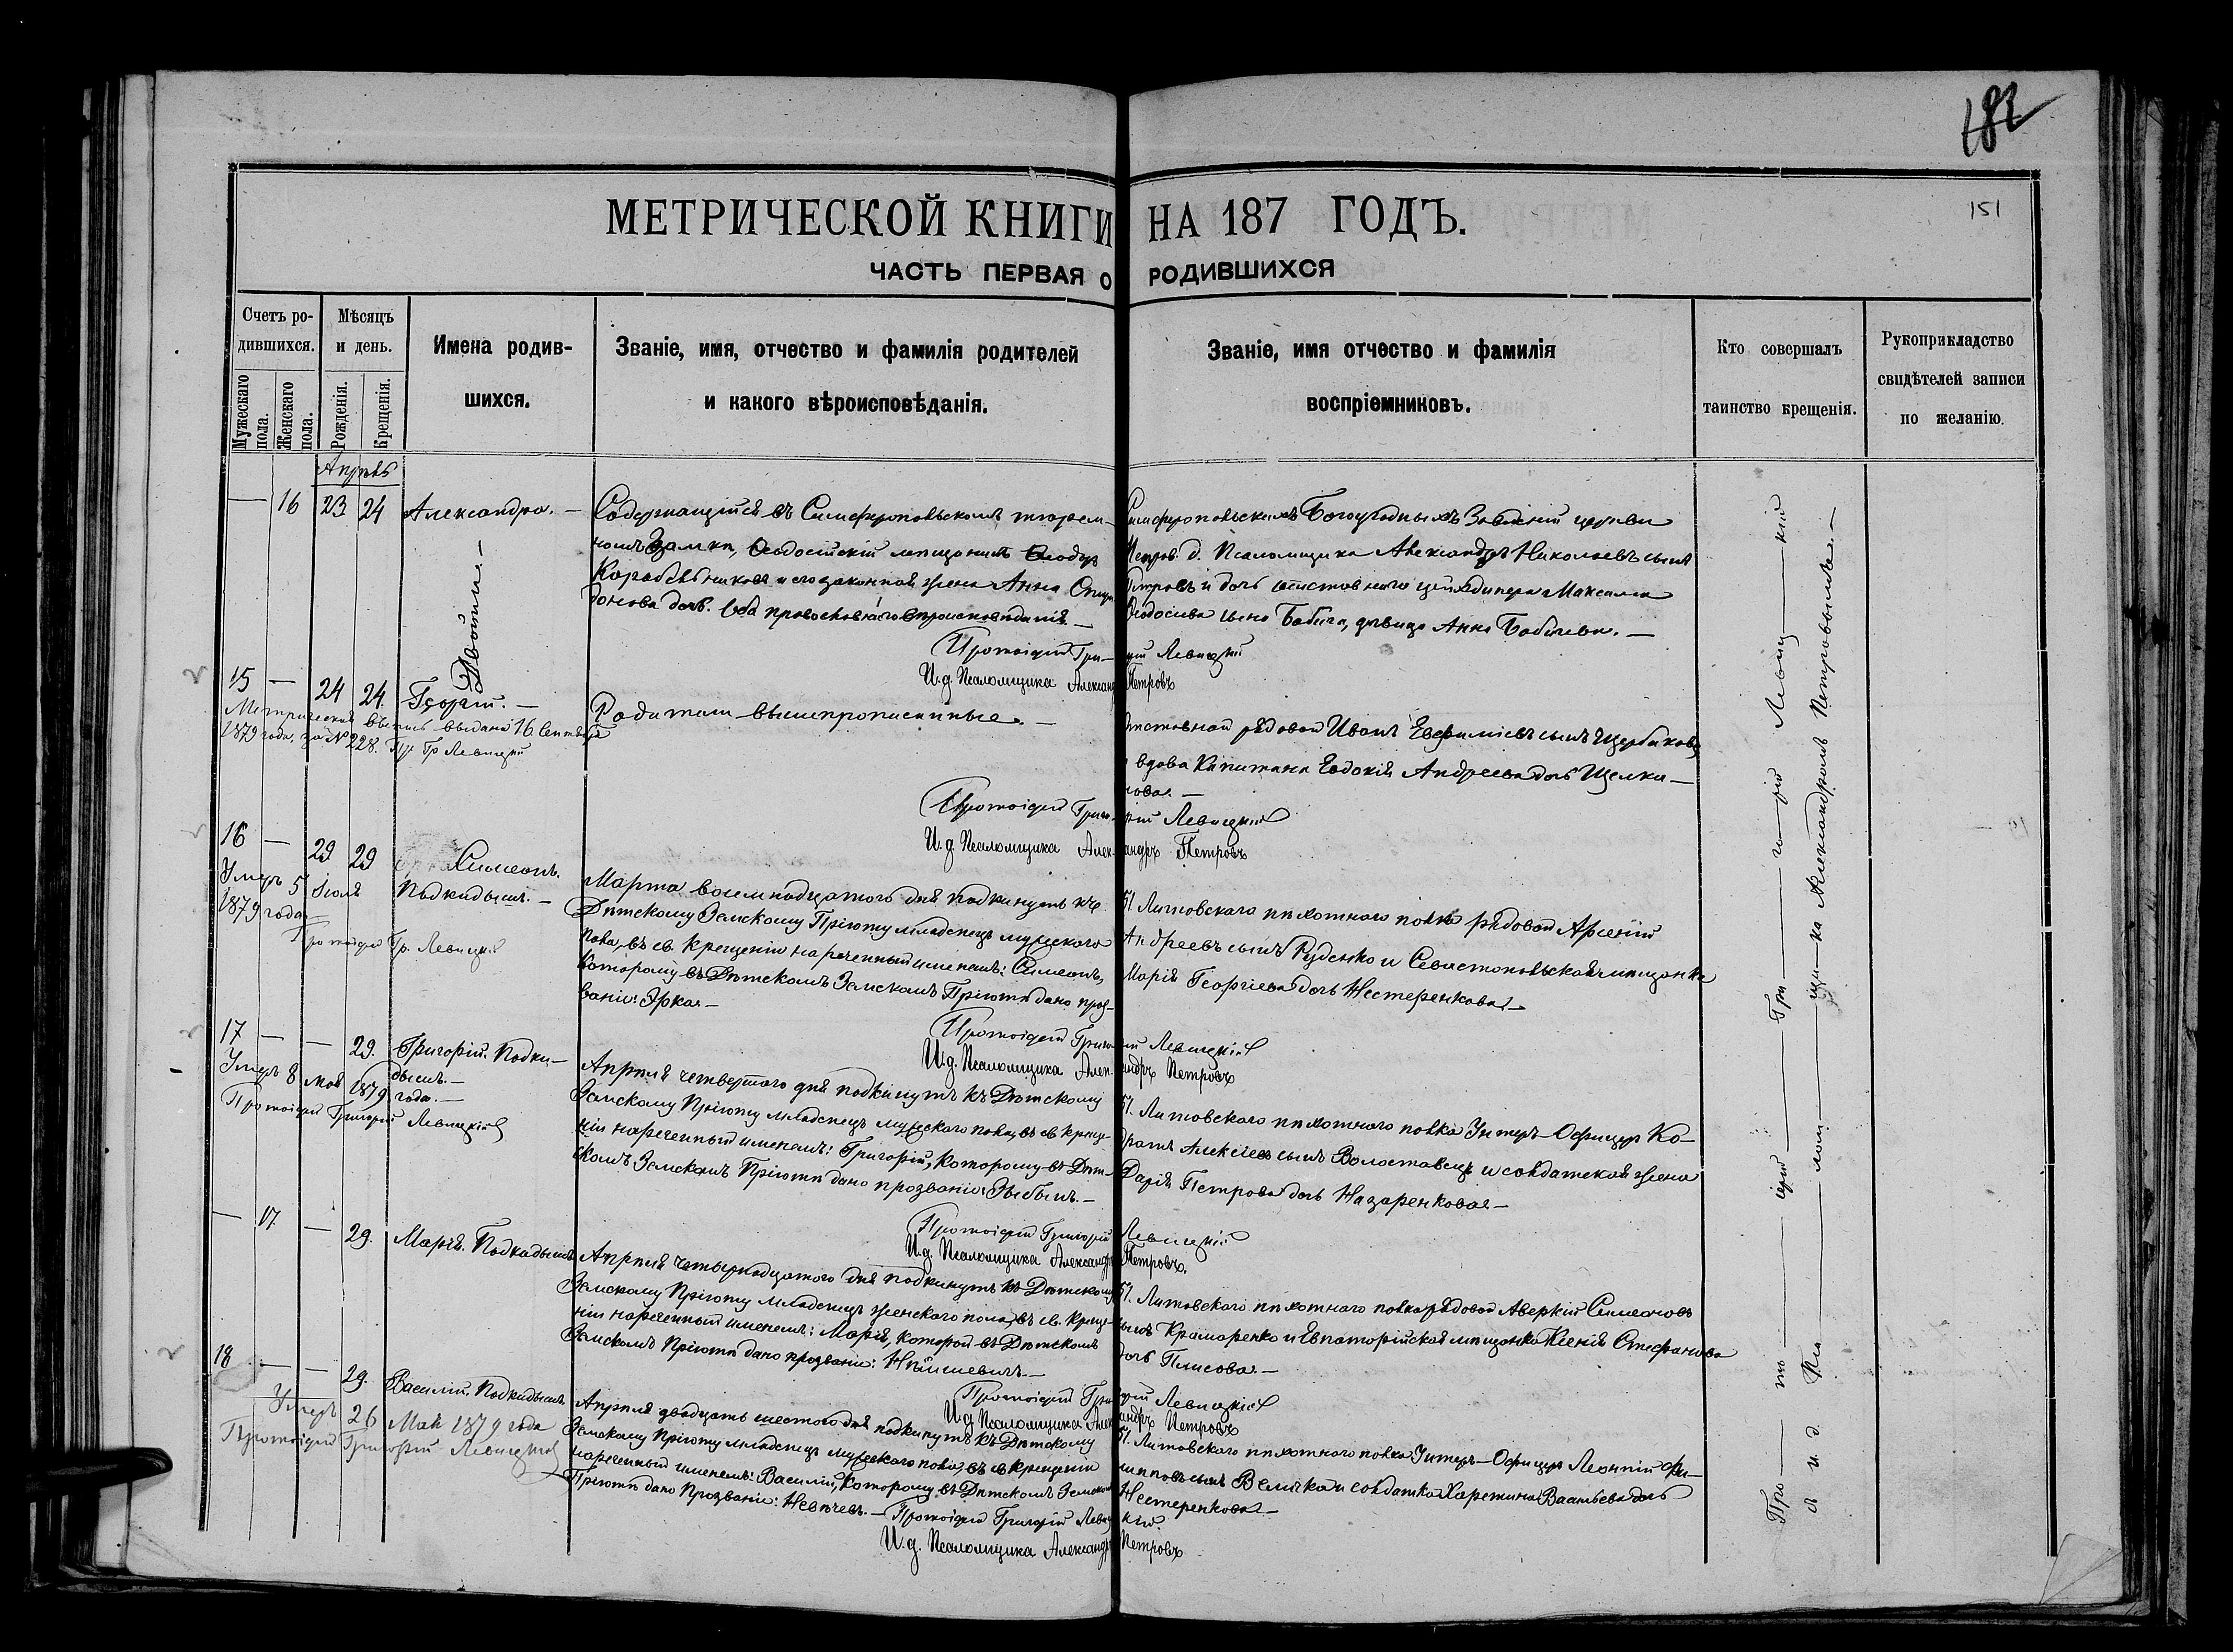 182
151
МЕТРИЧЕСКОЙ КНИГИ НА 187 ГОДЪ.
ЧАСТЬ ПЕРВАЯ О РОДИВШИХСЯ
Счетъ ро-
дившихся.
Мужескаго пола.
Женскаго пола.
Мѣсяцъ
и день.
Рожденія.
Крещенія.
Имена родив-
шихся.
Званіе, имя, отчество и фамилія родителей
и какого вѣроисповѣданія.
Званіе, имя отчество и фамилія
воспріемниковъ.
Кто совершалъ
таинство крещенія.
Рукоприкладство
свидѣтелей записи
по желанію.
Апрѣль
— 16 23 24 Александра. —
Двойни. —
Содержащійся въ Симферопольскомъ тюрем-
номъ Замкѣ, Ѳеодосійскій мѣщанинъ Ѳеодоръ
Корабельниковъ и его законная жена Анна Спири
донова дочь. Оба православнаго вѣроисповѣданія. —
Симферопольскихъ Богоугодныхъ Заведеній церкви
д. Псаломщика Александръ Николаевъ сынъ
Петровъ и дочь отставнаго Максима
Ѳеодосіева сына Бабича, дѣвица Анна Бабичева. —
Протоіерей Григорій Левицкій
И. д. Псаломщика Александръ Петровъ
15 — 24 24. Георгій. —
Метрическая выпись выдана 16 Сентября
1879 года, за № 228. Пр. Гр Левицкій
Родители вышепрописанные. —
Отставной рядовой Иванъ Евфиміевъ сынъ Щербаковъ
и вдова Капитана Евдокія Андреева дочь Щелка-
нова. —
Протоіерей Григорій Левицкій
И. д. Псаломщика Александръ Петровъ
16 — 29 29 Симеонъ.
Подкидышъ. —
Умеръ 5 Іюля
1879 года —
Протоіерей Гр. Левицкій
Марта восемнадцатого дня подкинутъ къ
Дѣтскому Земскому Пріюту младенецъ мужескаго
пола, въ св. крещеніи нареченный именемъ: Симеонъ,
которому въ Дѣтскомъ Земскомъ Пріютѣ дано проз-
ваніе: Эрка. —
51. Литовскаго пѣхотнаго полка рядовой Арсеній
Андреевъ сынъ Руденко и Севастопольская мѣщанка
Марія Георгіева дочь Нестеренкова. —
Протоіерей Григорій Левицкій
И. д. Псаломщика Александръ Петровъ
17 — — 29. Григорій. Подки-
дышъ. —
Умеръ 8 мая 1879 года. —
Протоіерей Григорій Левицкій
Апрѣля четвертаго дня подкинутъ къ Дѣтскому
Земскому Пріюту младенецъ мужескаго пола, въ св. креще-
ніи нареченный именемъ: Григорій, которому въ Дѣт-
скомъ Земскомъ Пріютѣ дано прозваніе: Зыбымъ. —
51. Литовскаго пѣхотнаго полка Унтеръ-Офицеръ Ко-
дратъ Алексѣевъ сынъ Волоставецъ и солдатская жена
Дарія Петрова дочь Назаренкова. —
Протоіерей Григорій Левицкій
И. д. Псаломщика Александръ Петровъ.
— 17 — 29. Марія. Подкидышъ
Апрѣля четырнадцатого дня подкинутъ къ Дѣтскому
Земскому Пріюту младенецъ женскаго пола, въ св. креще-
ніи нареченный именемъ: Марія, которой въ Дѣтскомъ
Земскомъ Пріютѣ дано прозваніе:
51. Литовскаго пѣхотнаго полка рядовой Аверкій Симеоновъ
сынъ Крамаренко и Евпаторійская мѣщанка Ксенія Стефанова
дочь Плисова. —
Протоіерей Григорій Левицкій
И. д. Псаломщика Александръ Петровъ
18 — — 29. Василій. Подкидышъ
Умеръ 26 Мая 1879 года
Протоіерей Григорій Левицкій
Апрѣля двадцать шестого дня подкинутъ къ Дѣтскому
Земскому Пріюту младенецъ мужескаго пола, въ св. крещеніи
нареченный именемъ: Василій, которому въ Дѣтскомъ Земскомъ
Пріютѣ дано Прозваніе: —
51. Литовскаго пѣхотнаго полка Унтеръ-Офицеръ Леонтій Фи-
липповъ сынъ Величка и солдатка Харитина Васильева дочь
Нестеренкова. —
Протоіерей Григорій Левицкій.
И. д. Псаломщика Александръ Петровъ
Про — то — іерей — Гри — го — рій — Левиц — кій
съ и. д. Пса — лом — щи — ка Александромъ Петровымъ. —